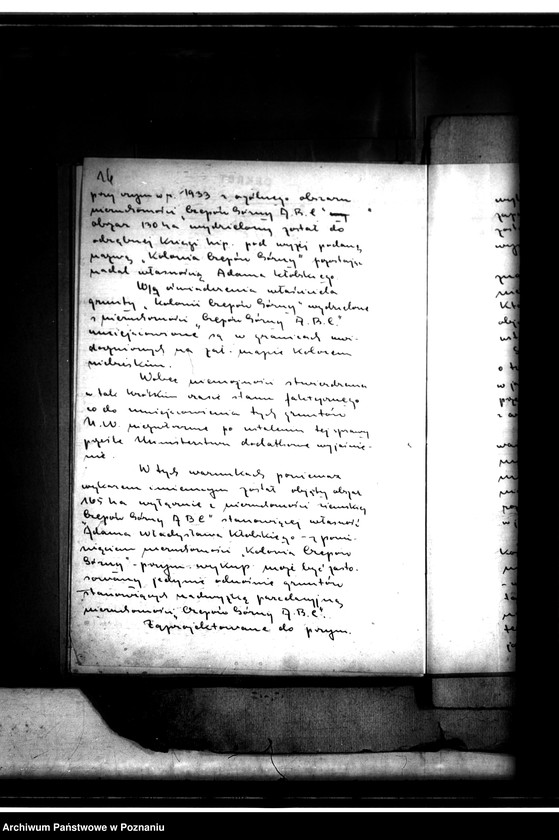 16
przy czym w p. 1933 z ogólnego obszaru
nieruchomości "Czepów Górny A.B.C"
obszar 130 ha wydzielony został do
odrębnej księgi hip. pod wyżej podaną
nazwą "Kolonia Czepów Górny" pozostając
nadal własnością Adama Kłobskiego.
W/g oświadczenia właściciela
grunty "Kolonii Czepów Górny" wydzielone
z nieruchomości "Czepów Górny A.B.C."
umiejscowione są w granicach uwi-
docznionych na zał. mapie kolorem
niebieskim.
Wobec niemożności stwierdzenia
w tak krótkim czasie stanu faktycznego
co do umiejscowienia tych gruntów
U.W. niezwłocznie po ustaleniu tej sprawy
prześle Ministerstwu dodatkowe wyjaśnie-
nie.
W tych warunkach ponieważ
wykazem imiennym został objęty obszar
165 ha wyłącznie z nieruchomości ziemskiej
"Czepów Górny A B C" stanowiącej własność
Adama Władysława Kłobskiego - z pomi-
nięciem nieruchomości "Kolonia Czepów
Górny" - przym. wykup może być zasto-
sowany jedynie odnośnie gruntów
stanowiących nadwyżkę parcelacyjną
nieruchomości "Czepów Górny A.B.C".
Zaprojektowane do przym.
Archiwum Państwowe w Poznaniu